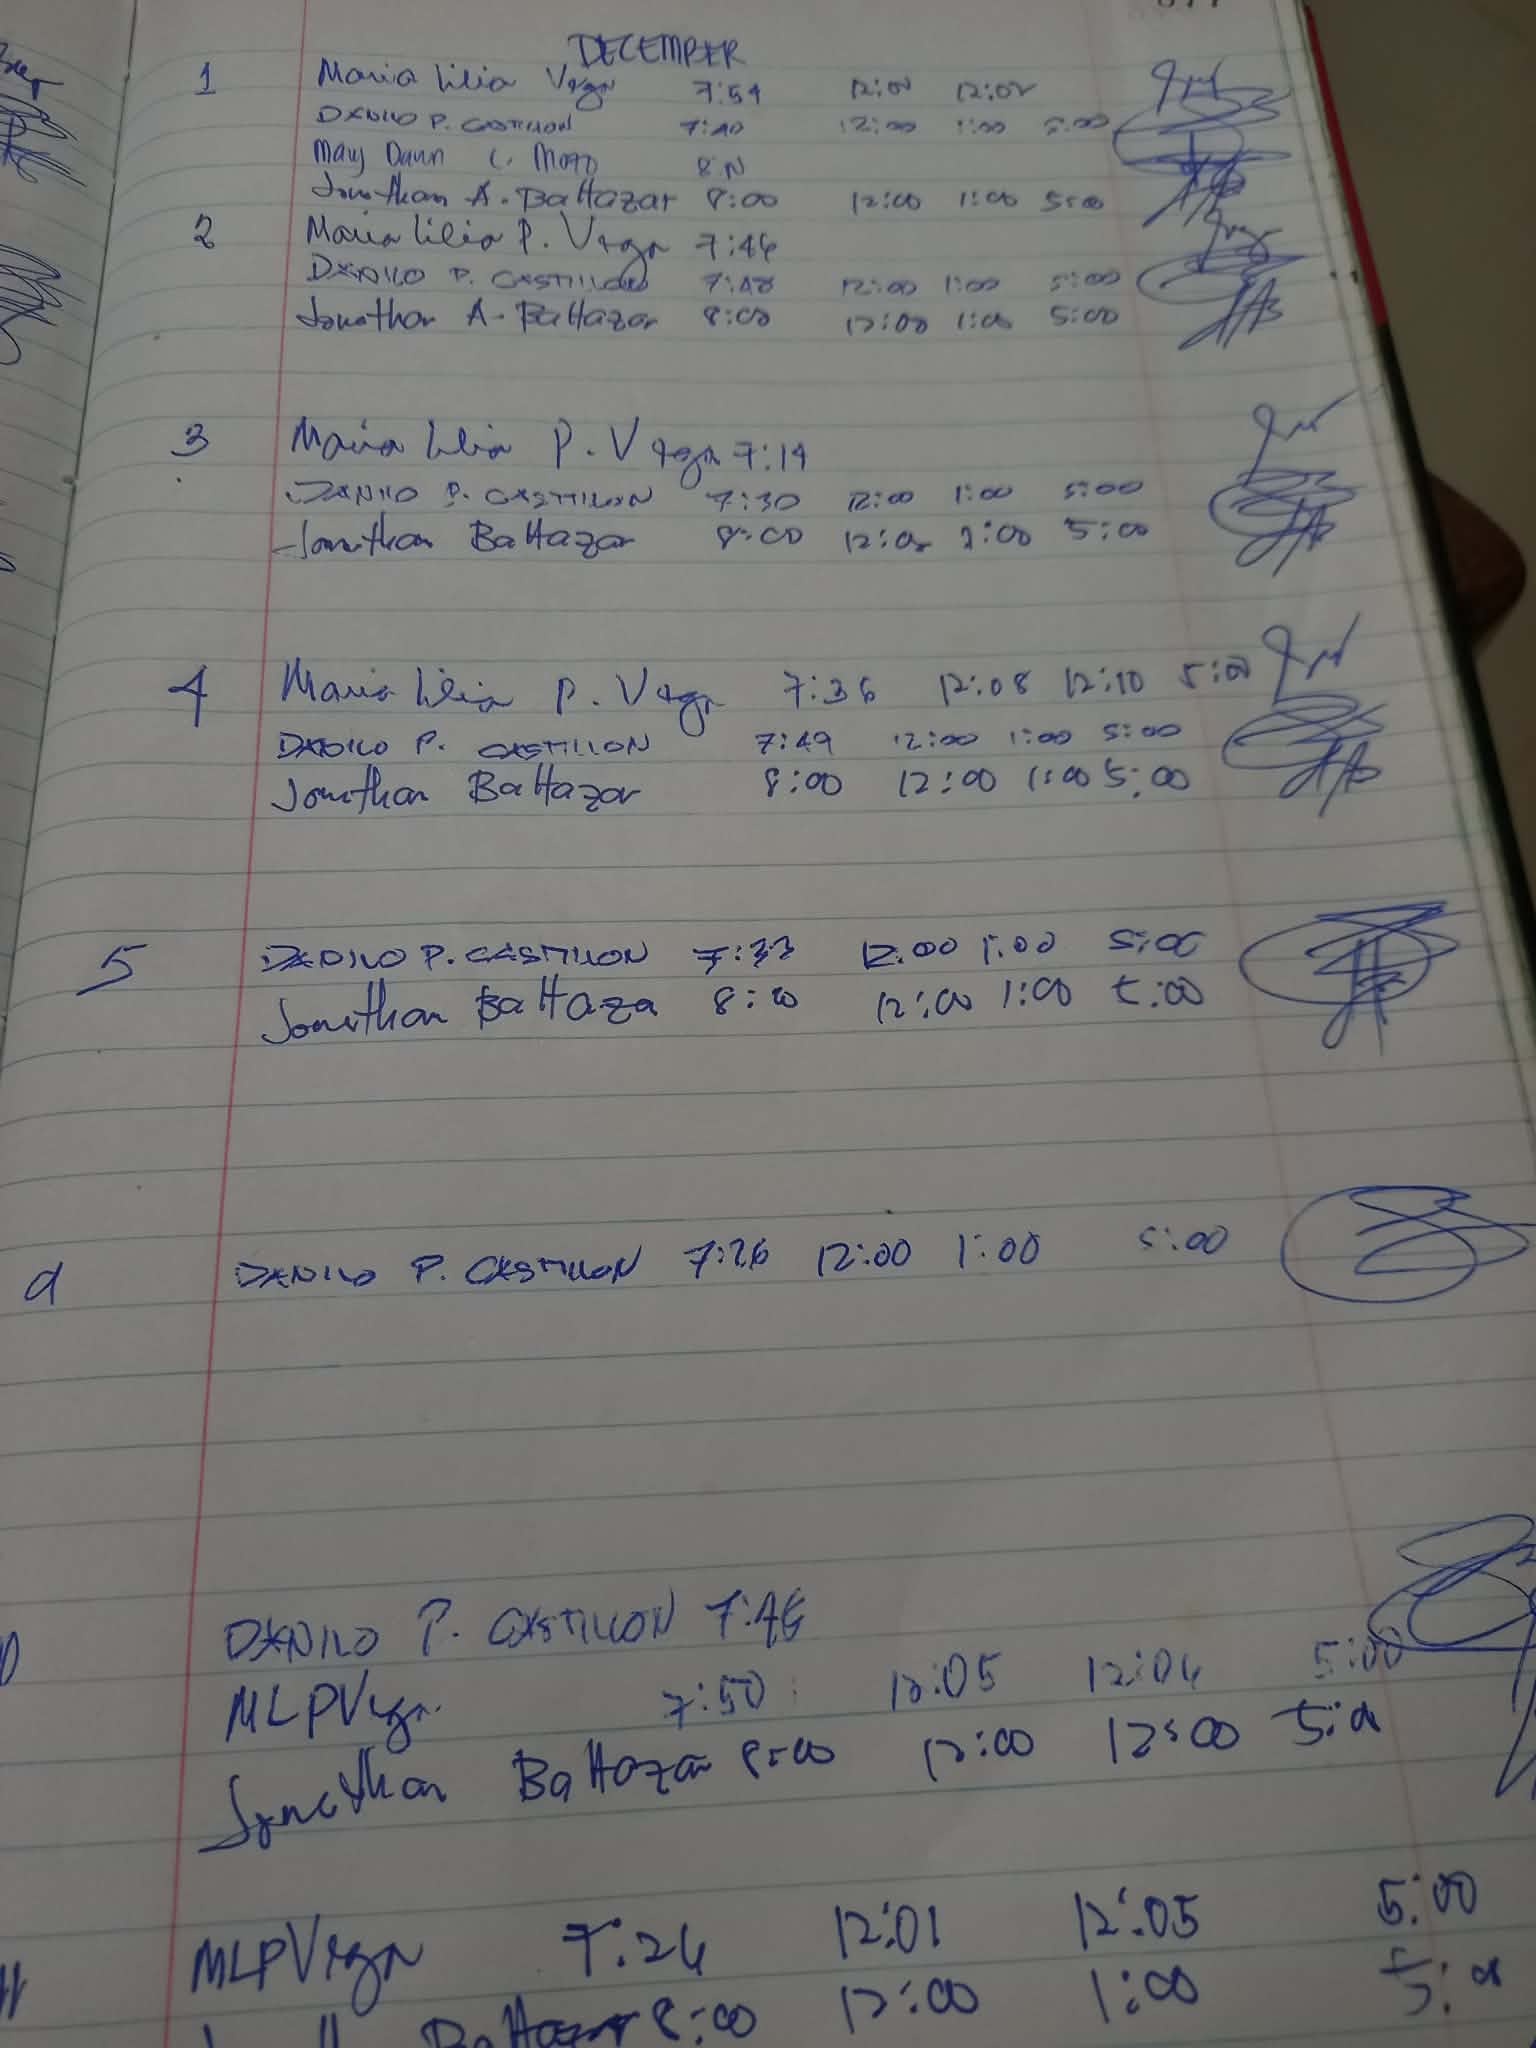 DECEMBER
1 Maria Lilia Vega 7:54 12:01 12:02
DANILO P. CASTILLON 7:40 12:00 1:00 5:00
Mary Dawn C. 8:
Jonathan A. Baltazar 8:00 12:00 1:00 5:00
2 Maria Lilia P. Vega 7:46
DANILO P. CASTILLON 7:48 12:00 1:00 5:00
Jonathan A. Baltazar 8:00 12:00 1:00 5:00
3 Maria Lilia P. Vega 7:19
DANILO P. CASTILLON 7:30 12:00 1:00 5:00
Jonathan Baltazar 8:00 12:00 1:00 5:00
4 Maria Lilia P. Vega 7:36 12:08 12:10 5:00
DANILO P. CASTILLON 7:49 12:00 1:00 5:00
Jonathan Baltazar 8:00 12:00 1:00 5:00
5 DANILO P. CASTILLON 7:33 12:00 1:00 5:00
Jonathan Baltaza 8:00 12:00 1:00 5:00
9 DANILO P. CASTILLON 7:26 12:00 1:00 5:00
DANILO P. CASTILLON 7:46
MLPVega 7:50 12:05 12:06 5:00
Jonathan Baltazar 8:00 12:00 12:00 5:00
11 MLPVega 7:26 12:01 12:05 5:00
Baltazar 8:00 12:00 1:00 5:00